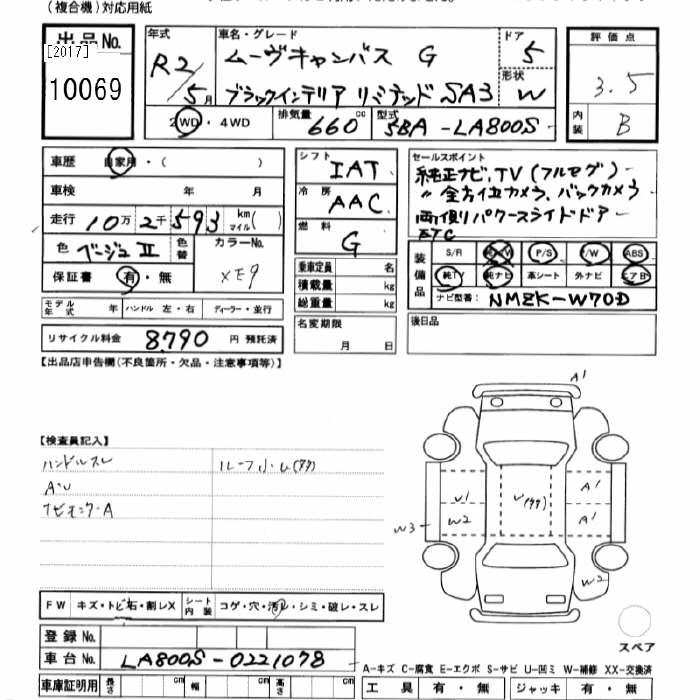 (複合機)対応用紙
出品No.
[2017]
10069
年式
R2/5月
車名・グレード
ムーヴキャンバス G
ブラックインテリア リミテッド SA3
ドア
5
形状
W
評価点
3.5
内装
B
2WD・4WD
排気量
660 cc
型式
5BA-LA800S
車歴 自家用・( )
車検 年 月
走行 10万2千593 km マイル( )
色 ベージュII
色替
カラーNo.
XE9
保証書 有・無
モデル年式 年
ハンドル 左・右
ディーラー・並行
リサイクル料金 8790 円 預託済
シフト
IAT
冷房
AAC
燃料
G
乗車定員 名
積載量 kg
総重量 kg
名変期限
月 日
セールスポイント
純正ナビ、TV(フルセグ)
〃 全方位カメラ、バックカメラ
両側パワースライドドアー
ETC
装備品
S/R P/S P/W ABS
純TV 純ナビ 革シート 外ナビ エアB
ナビ型番: NMZK-W70D
後日品
【出品店申告欄(不良箇所・欠品・注意事項等)】
【検査員記入】
ハンドルスレ
ルーフ小U(タタ)
A・U
トビキズ・A
A1
U1
W2
W3
U(タタ)
A1
A1
W2
スペア
FW キズ・トビ石・割レX
シート内装 コゲ・穴・汚レ・シミ・破レ・スレ
登録No.
車台No. LA800S-0221078
車庫証明用 長さ cm 幅 cm 高さ cm
A-キズ C-腐食 E-エクボ S-サビ U-凹ミ W-補修 XX-交換済
工具 有・無 ジャッキ 有・無